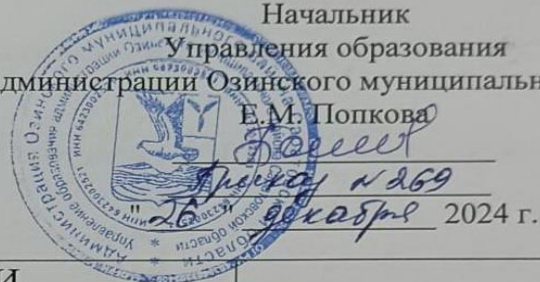 Начальник
Управления образования
дминистрации Озинского муниципальн
Е.М. Попкова
Приказ №269
"26" декабря 2024 г.
И